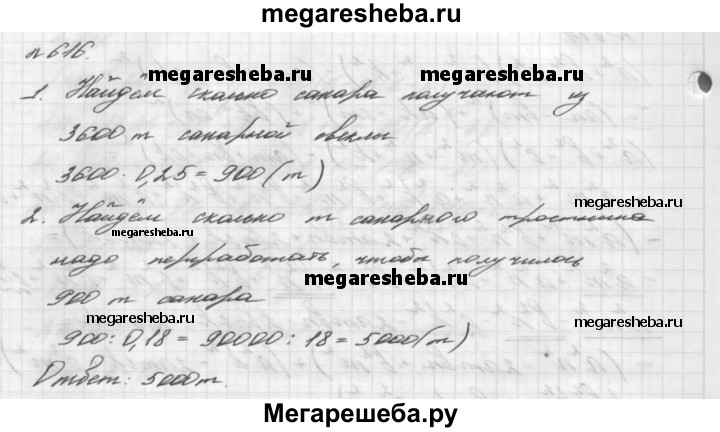 megaresheba.ru
n 616.
megaresheba.ru megaresheba.ru
1. Найдём сколько сахара получают из
3600 т сахарной свеклы
3600 · 0,25 = 900 (т)
megaresheba.ru
2. Найдём сколько т сахарного тростника
megaresheba.ru megaresheba.ru
надо переработать, чтобы получилось
megaresheba.ru
900 т сахара
megaresheba.ru
900 : 0,18 = 90000 : 18 = 5000 (т)
Ответ: 5000 т.
Мегарешеба.ру